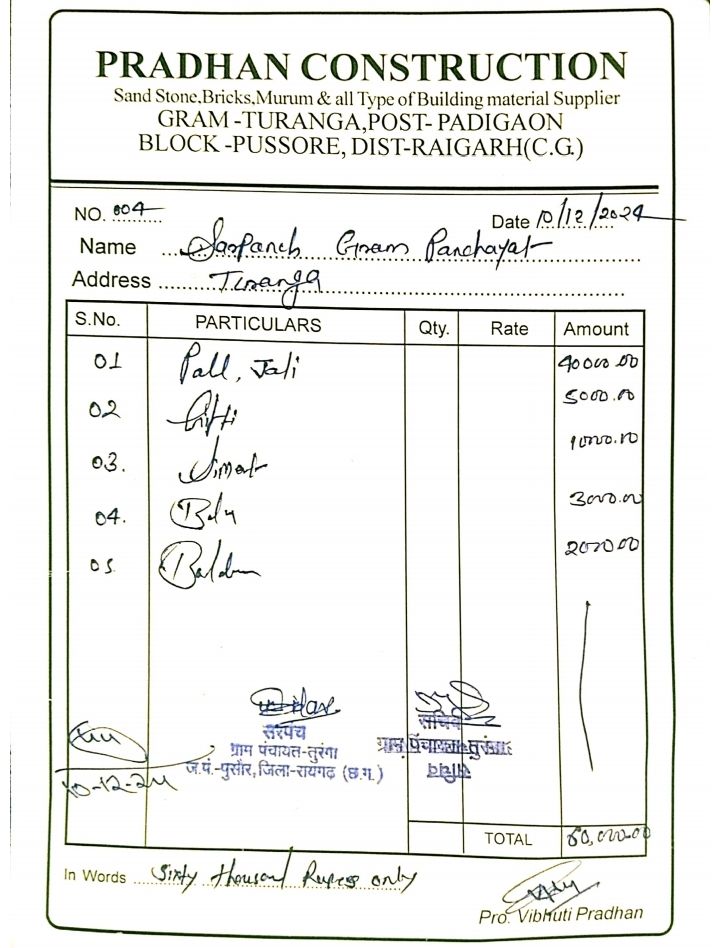 PRADHAN CONSTRUCTION
Sand Stone,Bricks,Murum & all Type of Building material Supplier
GRAM -TURANGA,POST- PADIGAON
BLOCK -PUSSORE, DIST-RAIGARH(C.G.)
NO. 004 Date 10/12/2024
Name Sarpanch Gram Panchayat
Address Turanga
S.No. PARTICULARS Qty. Rate Amount
01 Pall, Jali 40000.00
02 Gitti 5000.00
03. 3000.00
04. Balu
05. 2000.00
सरपंच
ग्राम पंचायत-तुरंगा
ज.पं.-पुसौर, जिला-रायगढ़ (छ.ग.)
सचिव
ग्राम पंचायत-तुरंगा
10-12-24
TOTAL 60,000.00
In Words Sixty thousand Rupees only
Pro. Vibhuti Pradhan